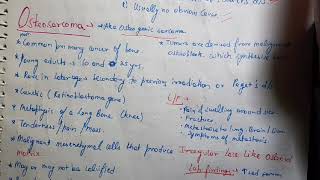 1. Usually no obvious cause.
Osteosarcoma → Aka Osteogenic sarcoma
* Common primary cancer of bone
* Tumors are derived from malignant osteoblast, which synthesize
* Young adults → 10 and 25 yrs.
* Rare in later ages secondary to previous irradiation or Paget's d
* Genetic (Retinoblastoma gene)
* Metaphysis of a long Bone (knee)
* Tenderness / Pain / Mass.
C/P
* Pain & swelling around
• Fracture
• Metastasis to lung, Brain / Liver
• Symptoms of metastasis
* Malignant mesenchymal cells that produce Irregular lace like Osteoid matrix
* May or may not be calcified
Lab findings